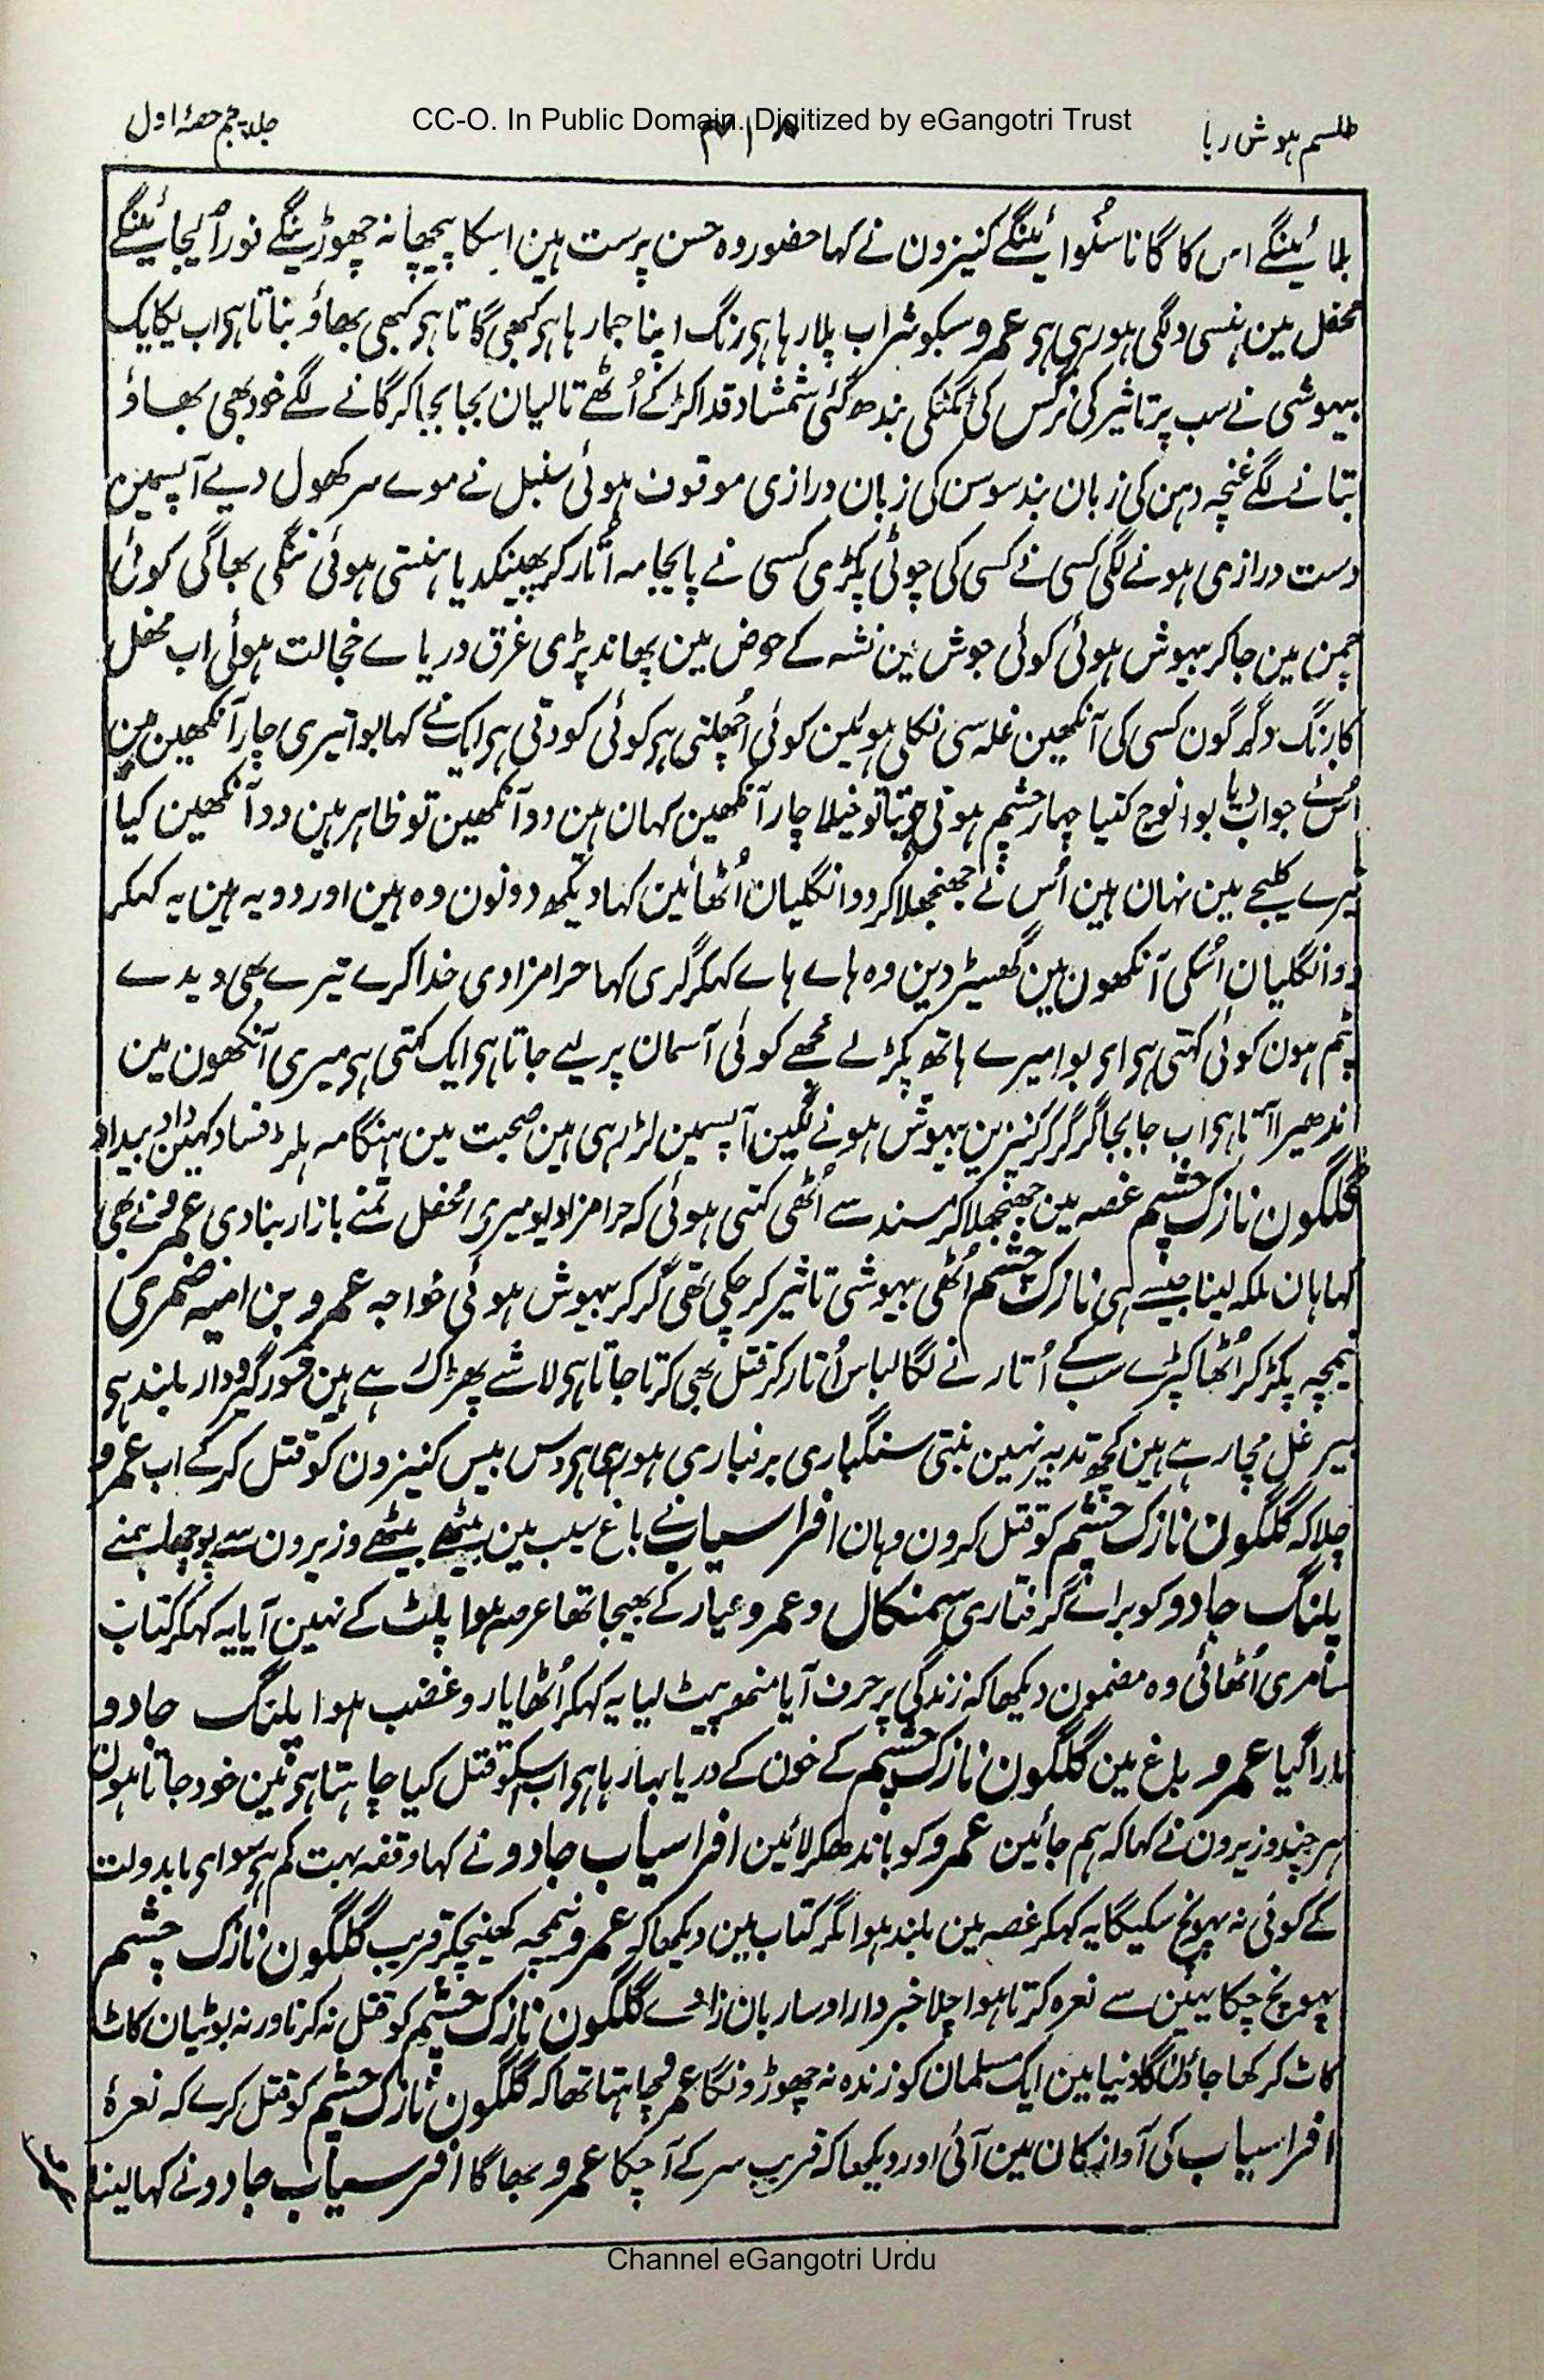 طلسم ہوش ربا
CC-O. In Public Domain. Digitized by eGangotri Trust
جلد پنجم حصۂ اول
بلائینگے اس کا گانا سنوائینگے کنیزون نے کہا حضور وہ حسن پرست ہین اسکا پیچھا نہ چھوڑینگے فوراً لیجائینگے
محفل مین ہنسی دلگی ہو رہی ہی عمرو سبکو شراب پلا رہا ہی رنگ اپنا جما رہا ہی کبھی گاتا ہی کبھی بھاؤ بتاتا ہی اب یکایک
بیہوشی نے سب پر تاثیر کی نرگس کی ٹکٹکی بندھ گئی شمشاد قد اکڑ کے اُٹھے تالیان بجا بجا کر گانے لگے خود بھی بھاؤ
بتانے لگے غنچہ دہن کی زبان بند سوسن کی زبان درازی موقوف ہوئی سنبل نے موے سر کھول دیے آپسمین
دست درازی ہونے لگی کسی نے کسی کی چوٹی پکڑی کسی نے پائجامہ اُتار کر پھینکدیا ہنستی ہوئی ننگی بھاگی کوئی
چمن مین جا کر بیہوش ہوئی کوئی جوش مین نشہ کے حوض مین پھاند پڑی غرق دریاے خجالت ہوئی اب محفل
کا رنگ دگرگون کسی کی آنکھین غلہ سی نکلی ہوئین کوئی اُچھلتی ہی کوئی کودتی ہی ایک نے کہا بوا تیری چار آنکھین ہین
اُسنے جواب دیا بوا نوج کتیا چہار چشم ہوتی ہی بتا تو خیلا چار آنکھین کہان ہین دو آنکھین تو ظاہر ہین دو آنکھین کیا
تیرے کلیجے مین نہان ہین اُس نے جھنجھلا کر دو انگلیان اُٹھائین کہا دیکھ دونون وہ ہین اور دو یہ ہین یہ کہکر
دو انگلیان اُسکی آنکھون مین گھسیڑ دین وہ ہاے ہاے کہکر گری کہا حرامزادی خدا کرے تیرے بھی دیدے
پٹم ہون کوئی کہتی ہی اوی بوا میرے ہاتھ پکڑ لے مجھے کوئی آسمان پر لیے جاتا ہی ایک کہتی ہی میری آنکھون مین
اندھیرا آتا ہی اب جابجا گر گر کر کنیزین بیہوش ہونے لگین آپسمین لڑ رہی ہین صحبت مین ہنگامہ ہلڑ فساد کہین داد بیداد
گلگون نازک چشم غصہ مین جھنجھلا کر مسند سے اُٹھی کہتی ہوئی کہ حرامزادیو میری محفل تمنے بازار بنا دی عمرو نے بھی
کہا ہان ملکہ لینا جیسے ہی نازک چشم اُٹھی بیہوشی تاثیر کر چکی تھی گر کر بیہوش ہوئی خواجہ عمرو بن امیہ ضمری
نیمچہ پکڑ کر اُٹھا کپڑے سب کے اُتارنے لگا لباس اُتار کر قتل بھی کرتا جاتا ہی لاشے پھڑک رہے ہین شور گیرودار بلند ہی
بیر غل مچا رہے ہین کچھ تدبیر نہین بنتی سنگباری برفباری ہو رہی ہی دس بیس کنیزون کو قتل کر کے اب عمرو
چلا کہ گلگون نازک چشم کو قتل کرون وہان افراسیاب نے باغ سیب مین بیٹھے بیٹھے وزیرون سے پوچھا ہمنے
پلنگ جادو کو براے گرفتاری سمنکال و عمرو عیار کے بھیجا تھا عرصہ ہوا پلٹ کے نہین آیا یہ کہکر کتاب
سامری اُٹھائی وہ مضمون دیکھا کہ زندگی پر حرف آیا منھ پیٹ لیا یہ کہکر اُٹھا یارو غضب ہوا پلنگ جادو
مارا گیا عمرو باغ مین گلگون نازک چشم کے خون کے دریا بہا رہا ہی اب اسکو قتل کیا چاہتا ہی مین خود جاتا ہون
ہر چند وزیرون نے کہا کہ ہم جائین عمرو کو باندھکر لائین افراسیاب جادو نے کہا وقفہ بہت کم ہی سواے مابدولت
کے کوئی نہ پہونچ سکیگا یہ کہکر غصہ مین بلند ہوا مگر کتاب مین دیکھا کہ عمرو نیمچہ کھینچکر قریب گلگون نازک چشم
پہونچ چکا یہین سے نعرہ کرتا ہوا چلا خبردار او ساربان زادے گلگون نازک چشم کو قتل نہ کرنا ورنہ بوٹیان کاٹ
کاٹ کر کھا جاؤن گا دنیا مین ایک مسلمان کو زندہ نہ چھوڑونگا عمرو چاہتا تھا کہ گلگون نازک چشم کو قتل کرے کہ نعرۂ
افراسیاب کی آواز کان مین آئی اور دیکھا کہ قریب سر کے آ چکا عمرو بھاگا افراسیاب جادو نے کہا لینا
Channel eGangotri Urdu